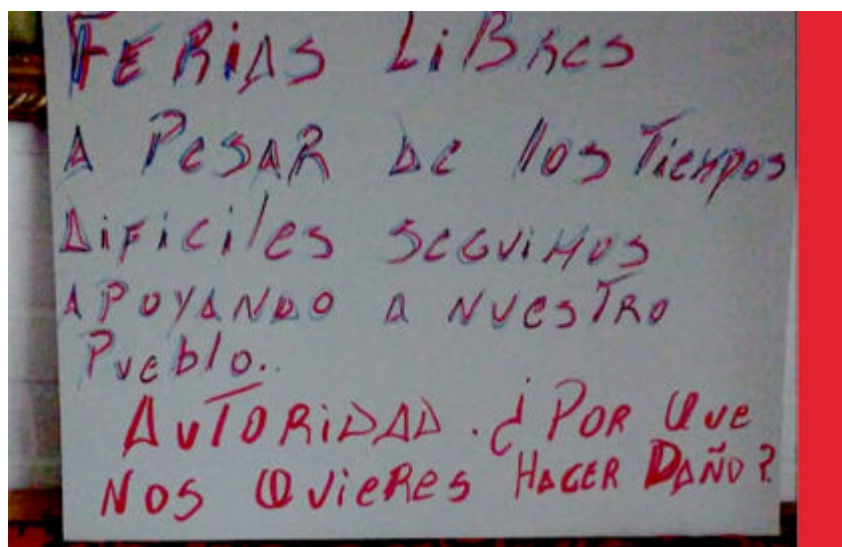 FERIAS LIBRES
A PESAR DE LOS TIEMPOS
DIFICILES SEGUIMOS
APOYANDO A NUESTRO
PUEBLO..
AUTORIDAD. ¿POR QUE
NOS QUIERES HACER DAÑO?